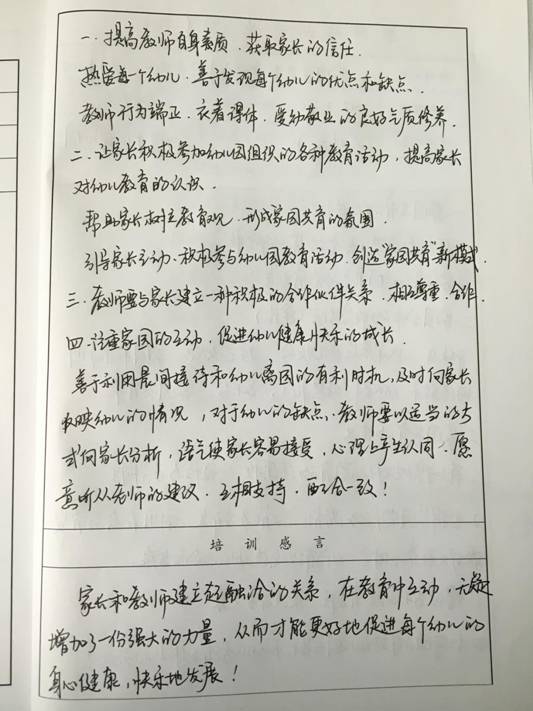 一. 提高教师自身素质、获取家长的信任.
热爱每个幼儿、善于发现每个幼儿的优点和缺点.
教师行为端正、衣着得体、爱幼敬业的良好气质修养.
二. 让家长积极参加幼儿园组织的各种教育活动, 提高家长
对幼儿教育的认识.
帮助家长树立教育观、形成家园共育的氛围.
引导家长主动、积极参与幼儿园教育活动、创造"家园共育"新模式.
三. 教师要与家长建立一种积极的合作伙伴关系, 相互尊重、合作.
四. 注重家园的互动, 促进幼儿健康快乐的成长.
善于利用晨间接待和幼儿离园的有利时机, 及时向家长
反映幼儿的情况, 对于幼儿的缺点、教师要以适当的方
式向家长分析, 语气使家长容易接受, 心理上产生认同、愿
意听从老师的建议、互相支持、配合一致!
培 训 感 言
家长和教师建立起融洽的关系, 在教育中互动, 无疑
增加了一份强大的力量, 从而才能更好地促进每个幼儿的
身心健康, 快乐地发展!